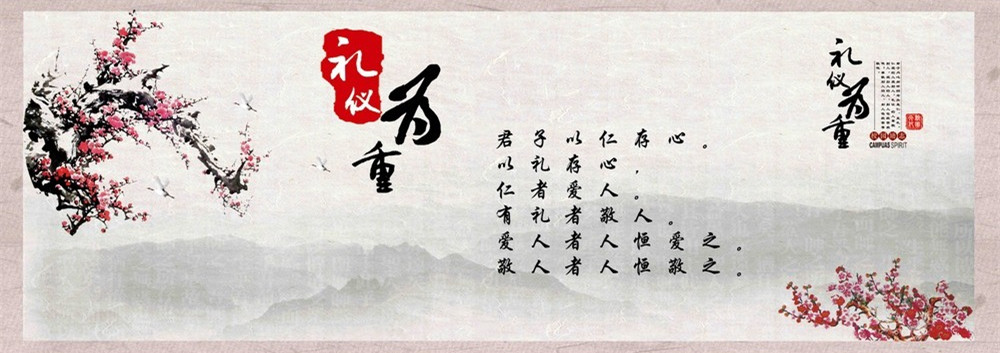 礼仪
为
重
君子以仁存心。
以礼存心，
仁者爱人。
有礼者敬人。
爱人者人恒爱之。
敬人者人恒敬之。
礼仪
为
重
CAMPUAS SPIRIT